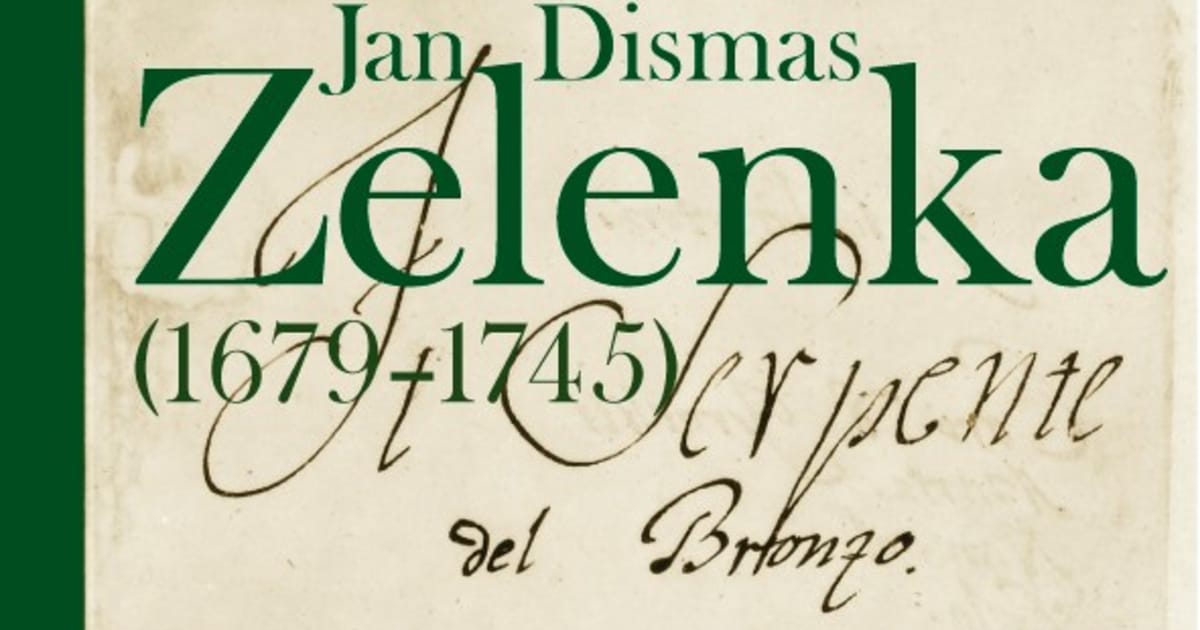 Jan Dismas
Zelenka
(1679–1745)
Il Serpente
del Bronzo.